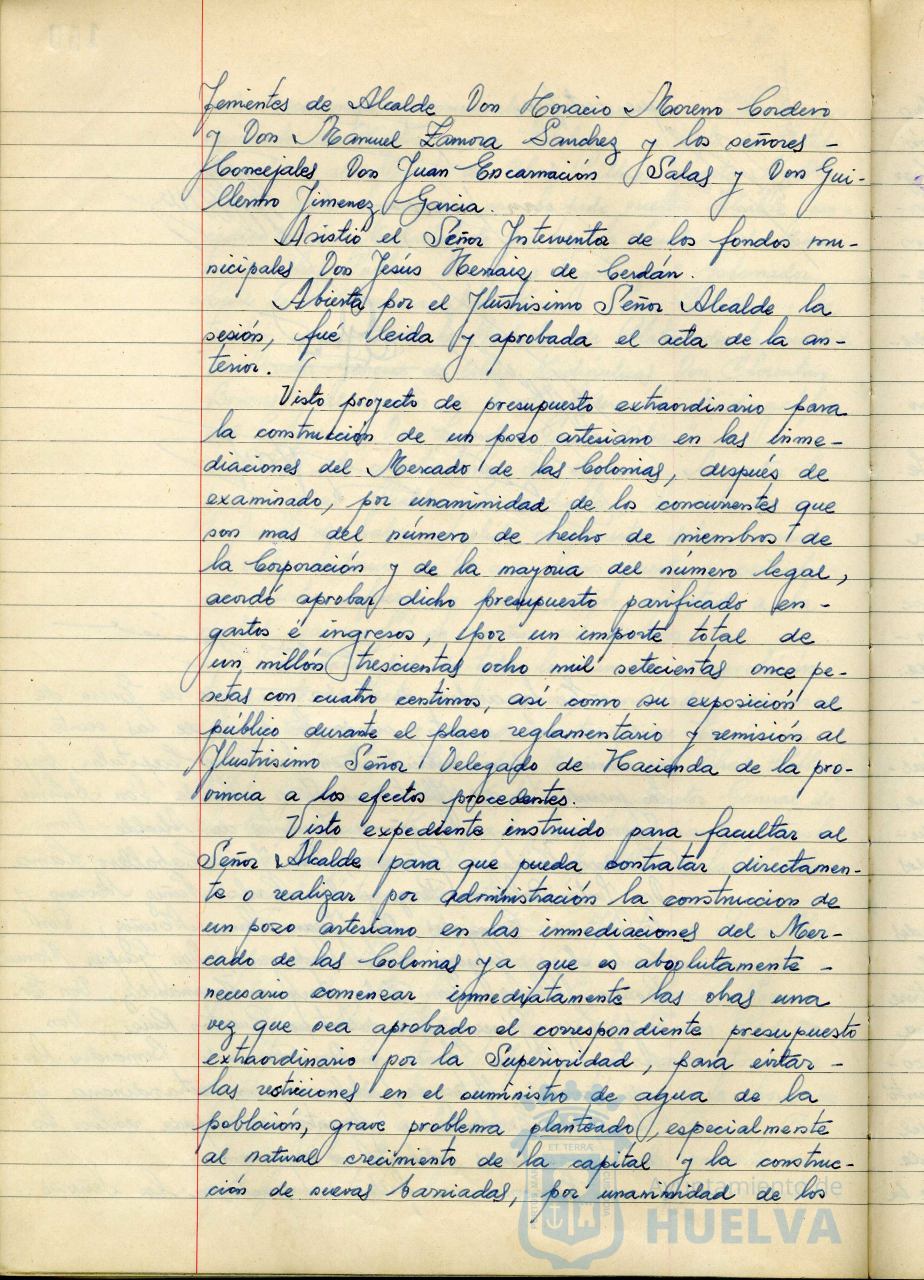 Tenientes de Alcalde Don Horacio Moreno Cordero
y Don Manuel Zamora Sanchez y los señores -
Concejales Don Juan Encarnación Salas y Don Gui-
llermo Jimenez Garcia.
Asistió el Señor Interventor de los fondos mu-
nicipales Don Jesús Hernaiz de Cerdán.
Abierta por el Ilustrisimo Señor Alcalde la
sesión, fué leida y aprobada el acta de la an-
terior.
Visto proyecto de presupuesto extraordinario para
la construcción de un pozo artesiano en las inme-
diaciones del Mercado de las Colonias, después de
examinado, por unanimidad de los concurrentes que
son mas del número de hecho de miembros de
la Corporación y de la mayoria del número legal,
acordó aprobar dicho presupuesto parificado en -
gastos é ingresos, por un importe total de
un millón trescientas ocho mil setecientas once pe-
setas con cuatro centimos, así como su exposición al
público durante el plazo reglamentario y remisión al
Ilustrisimo Señor Delegado de Hacienda de la pro-
vincia a los efectos procedentes.
Visto expediente instruido para facultar al
Señor Alcalde para que pueda contratar directamen-
te o realizar por administración la construccion de
un pozo artesiano en las inmediaciones del Mer-
cado de las Colonias ya que es absolutamente -
necesario comenzar inmediatamente las obras una
vez que sea aprobado el correspondiente presupuesto
extraordinario por la Superioridad, para evitar -
las restriciones en el suministro de agua de la
población, grave problema planteado, especialmente
al natural crecimiento de la capital y la construc-
ción de nuevas barriadas, por unanimidad de los
Ayuntamiento de
HUELVA